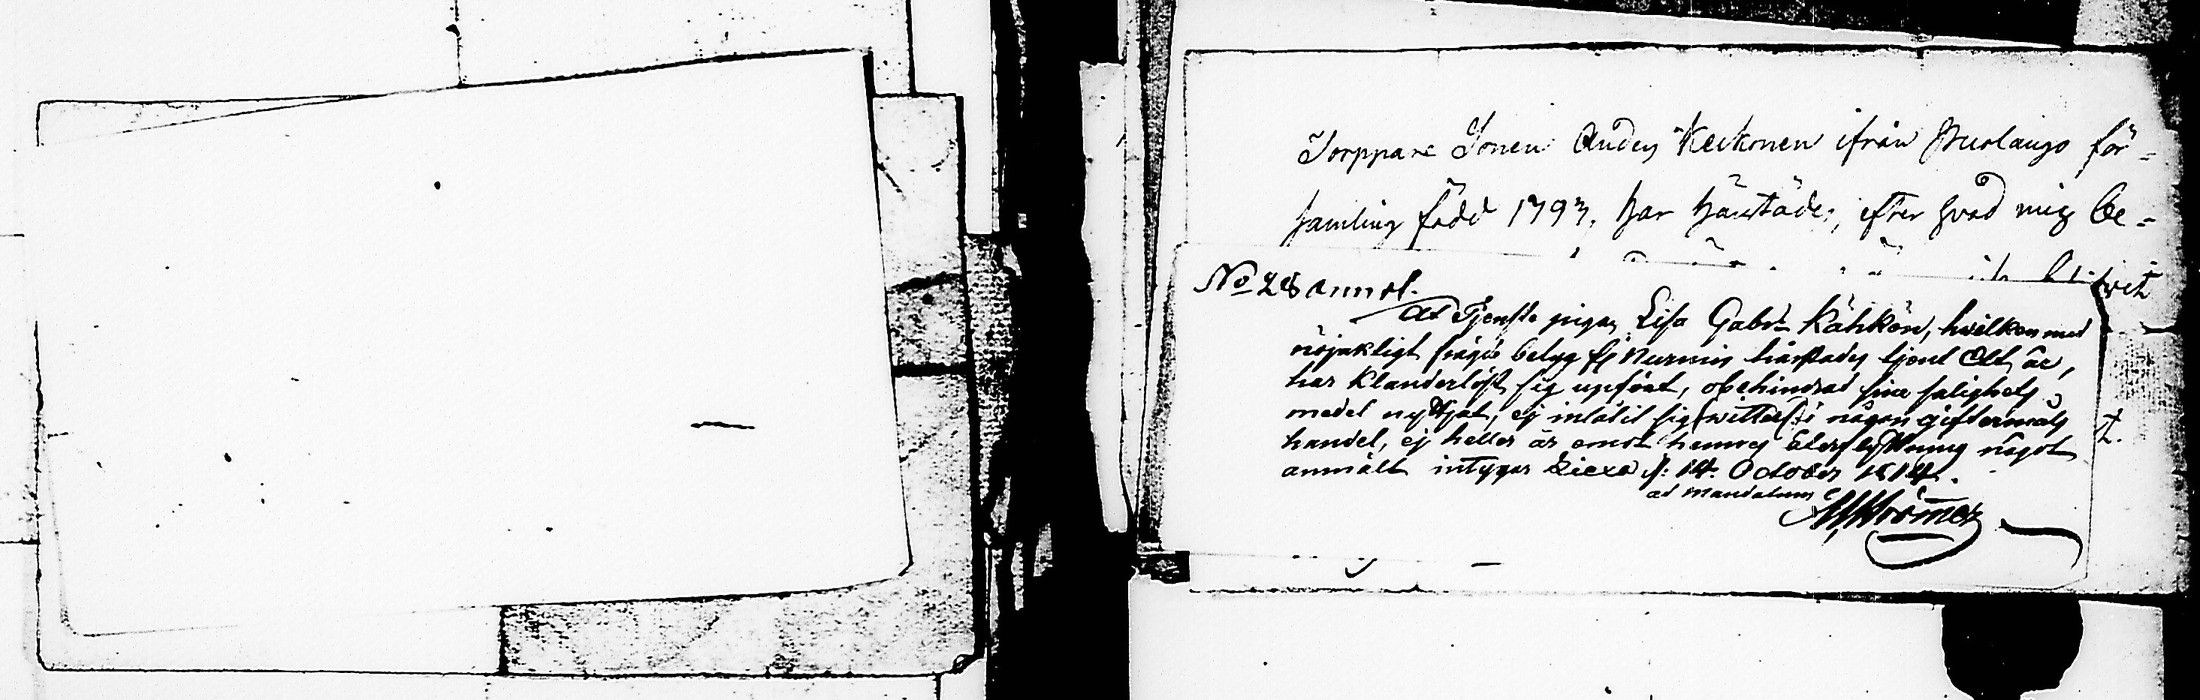 Torppare Sonen Anders Keckonen ifrån Puolango för-
samling född 1793, har härstädes, efter hvad mig be-
No 28 annot.
At Tjenste pigan Lisa Gabr:s Kähkön, hvilken med
nöjaktigt frägde belyg härstades tjent Ett år,
har klanderlöst sig upfört, obehindrad sine salighets
medel nyttjat, ej inlåtit sig (witterl:) i någon giftermåls
handel, ej heller är emot hennes återflyttning något
anmält intygar Liexa d. 14. October 1814.
ad mandatum